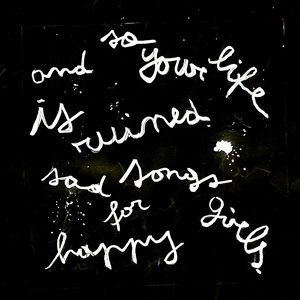 and so your life
is ruined
sad songs
for girls.
happy